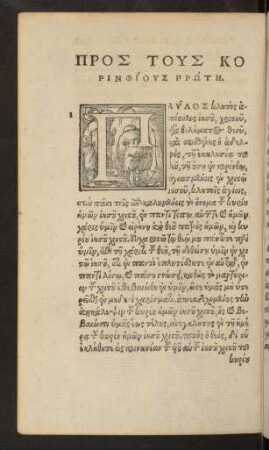 ΠΡΟΣ ΤΟΥΣ ΚΟ
ΡΙΝΘΙΟΥΣ ΠΡΩΤΗ.
1
Π
ΑΥΛΟΣ κλητὸς ἀ
πόστολος ἰησοῦ χριστοῦ,
διὰ θελήματος θεοῦ,
καὶ σωσθένης ὁ ἀδελ
φός, τῇ ἐκκλησίᾳ τοῦ
θεοῦ, τῇ οὔσῃ ἐν κορίνθῳ,
ἡγιασμένοις ἐν χριστῷ
ἰησοῦ, κλητοῖς ἁγίοις,
σὺν πᾶσι τοῖς ἐπικαλουμένοις τὸ ὄνομα τοῦ κυρίου
ἡμῶν ἰησοῦ χριστοῦ, ἐν παντὶ τόπῳ, αὐτῶν τε καὶ ἡμῶν,
χάρις ὑμῖν καὶ εἰρήνη ἀπὸ θεοῦ πατρὸς ἡμῶν, καὶ κυ
ρίου ἰησοῦ χριστοῦ. Εὐχαριστῶ τῷ θεῷ μου πάντοτε περὶ
ὑμῶν, ἐπὶ τῇ χάριτι τοῦ θεοῦ, τῇ δοθείσῃ ὑμῖν ἐν χριστῷ
ἰησοῦ, ὅτι ἐν παντὶ ἐπλουτίσθητε ἐν αὐτῷ, ἐν
παντὶ λόγῳ, καὶ πάσῃ γνώσει, καθὼς τὸ μαρτύρι
ον τοῦ χριστοῦ ἐβεβαιώθη ἐν ὑμῖν, ὥστε ὑμᾶς μὴ ὑστε
ρεῖσθαι ἐν μηδενὶ χαρίσματι, ἀπεκδεχομένους τὴν
ἀποκάλυψιν τοῦ κυρίου ἡμῶν ἰησοῦ χριστοῦ, ὃς καὶ βε
βαιώσει ὑμᾶς ἕως τέλους, ἀνεγκλήτους ἐν τῇ ἡμέ
ρᾳ τοῦ κυρίου ἡμῶν ἰησοῦ χριστοῦ. πιστὸς ὁ θεὸς, δι' οὗ
ἐκλήθητε εἰς κοινωνίαν τοῦ υἱοῦ αὐτοῦ ἰησοῦ χριστοῦ τοῦ
κυρίου